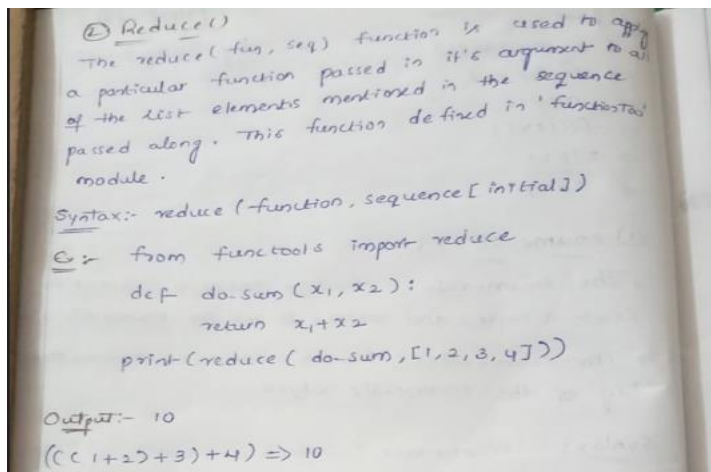 ② Reduce()
The reduce(fun, seq) function is used to apply
a particular function passed in it's argument to all
of the list elements mentioned in the sequence
passed along. This function defined in 'functionToo'
module.
Syntax:- reduce (function, sequence[initial])
from functools import reduce
def do-sum (x1, x2):
return x1+x2
print(reduce( do-sum, [1,2,3,4]))
Output:- 10
(((1+2)+3)+4) => 10